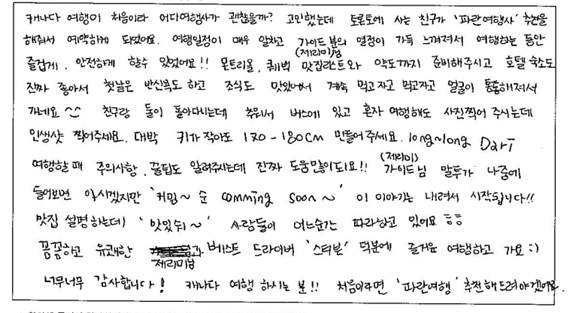 캐나다 여행이 처음이라 어디여행사가 괜찮을까? 고민했는데 토론토에 사는 친구가 '파란여행사' 추천을
해줘서 예약하게 되었어요. 여행일정이 매우 알차고 가이드분의 열정이 가득 느껴져서 여행하는 동안
(제레미님)
즐겁게, 안전하게 할수 있었어요!! 몬트리올, 퀘벡 맛집리스트와 약도까지 준비해주시고 호텔 숙소도
진짜 좋아서 첫날은 반신욕도 하고 조식도 맛있어서 계속 먹고자고 먹고자고 얼굴이 통통해져서
가네요 ^^ 친구랑 둘이 돌아다니는데 추워서 버스에 있고 혼자 여행해도 사진찍어 주시는데
인생샷 찍어주세요. 대박 키가 작아도 170-180cm 만들어주세요. long~long 다리
여행할때 주의사항, 꿀팁도 알려주시는데 진짜 도움많이되요!! 가이드님 말투가 나중에
(제레미)
들어보면 아시겠지만 '커밍~ 순 comming soon~' 이 이야기는 내려서 시작됩니다!!
맛집 설명하는데 '맛있쥐~' 사람들이 어느순간 따라하고 있어요 ㅎㅎ
꼼꼼하고 유쾌한 제레미님과 베스트 드라이버 '스티븐' 덕분에 즐거운 여행하고 가요 :)
너무너무 감사합니다! 캐나다 여행 하시는 분!! 처음이라면 '파란여행' 추천해드려야겠어요.